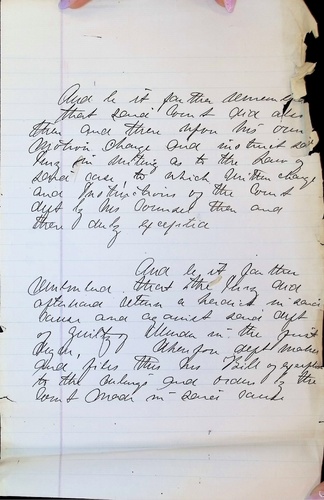 And be it further remembered
that said Court did also
then and there upon his own
motion charge and instruct said
Jury in writing as to the Law of
said case, to which written charge
and Instructions of the Court
deft by his Counsel then and
there duly excepted
And be it further
remembered that the Jury did
afterward return a verdict in said
cause and against said deft
of guilty of Murder in the first
degree, Wherefore deft makes
and files this his Bill of exceptions
to the rulings and orders of the
Court made in said cause